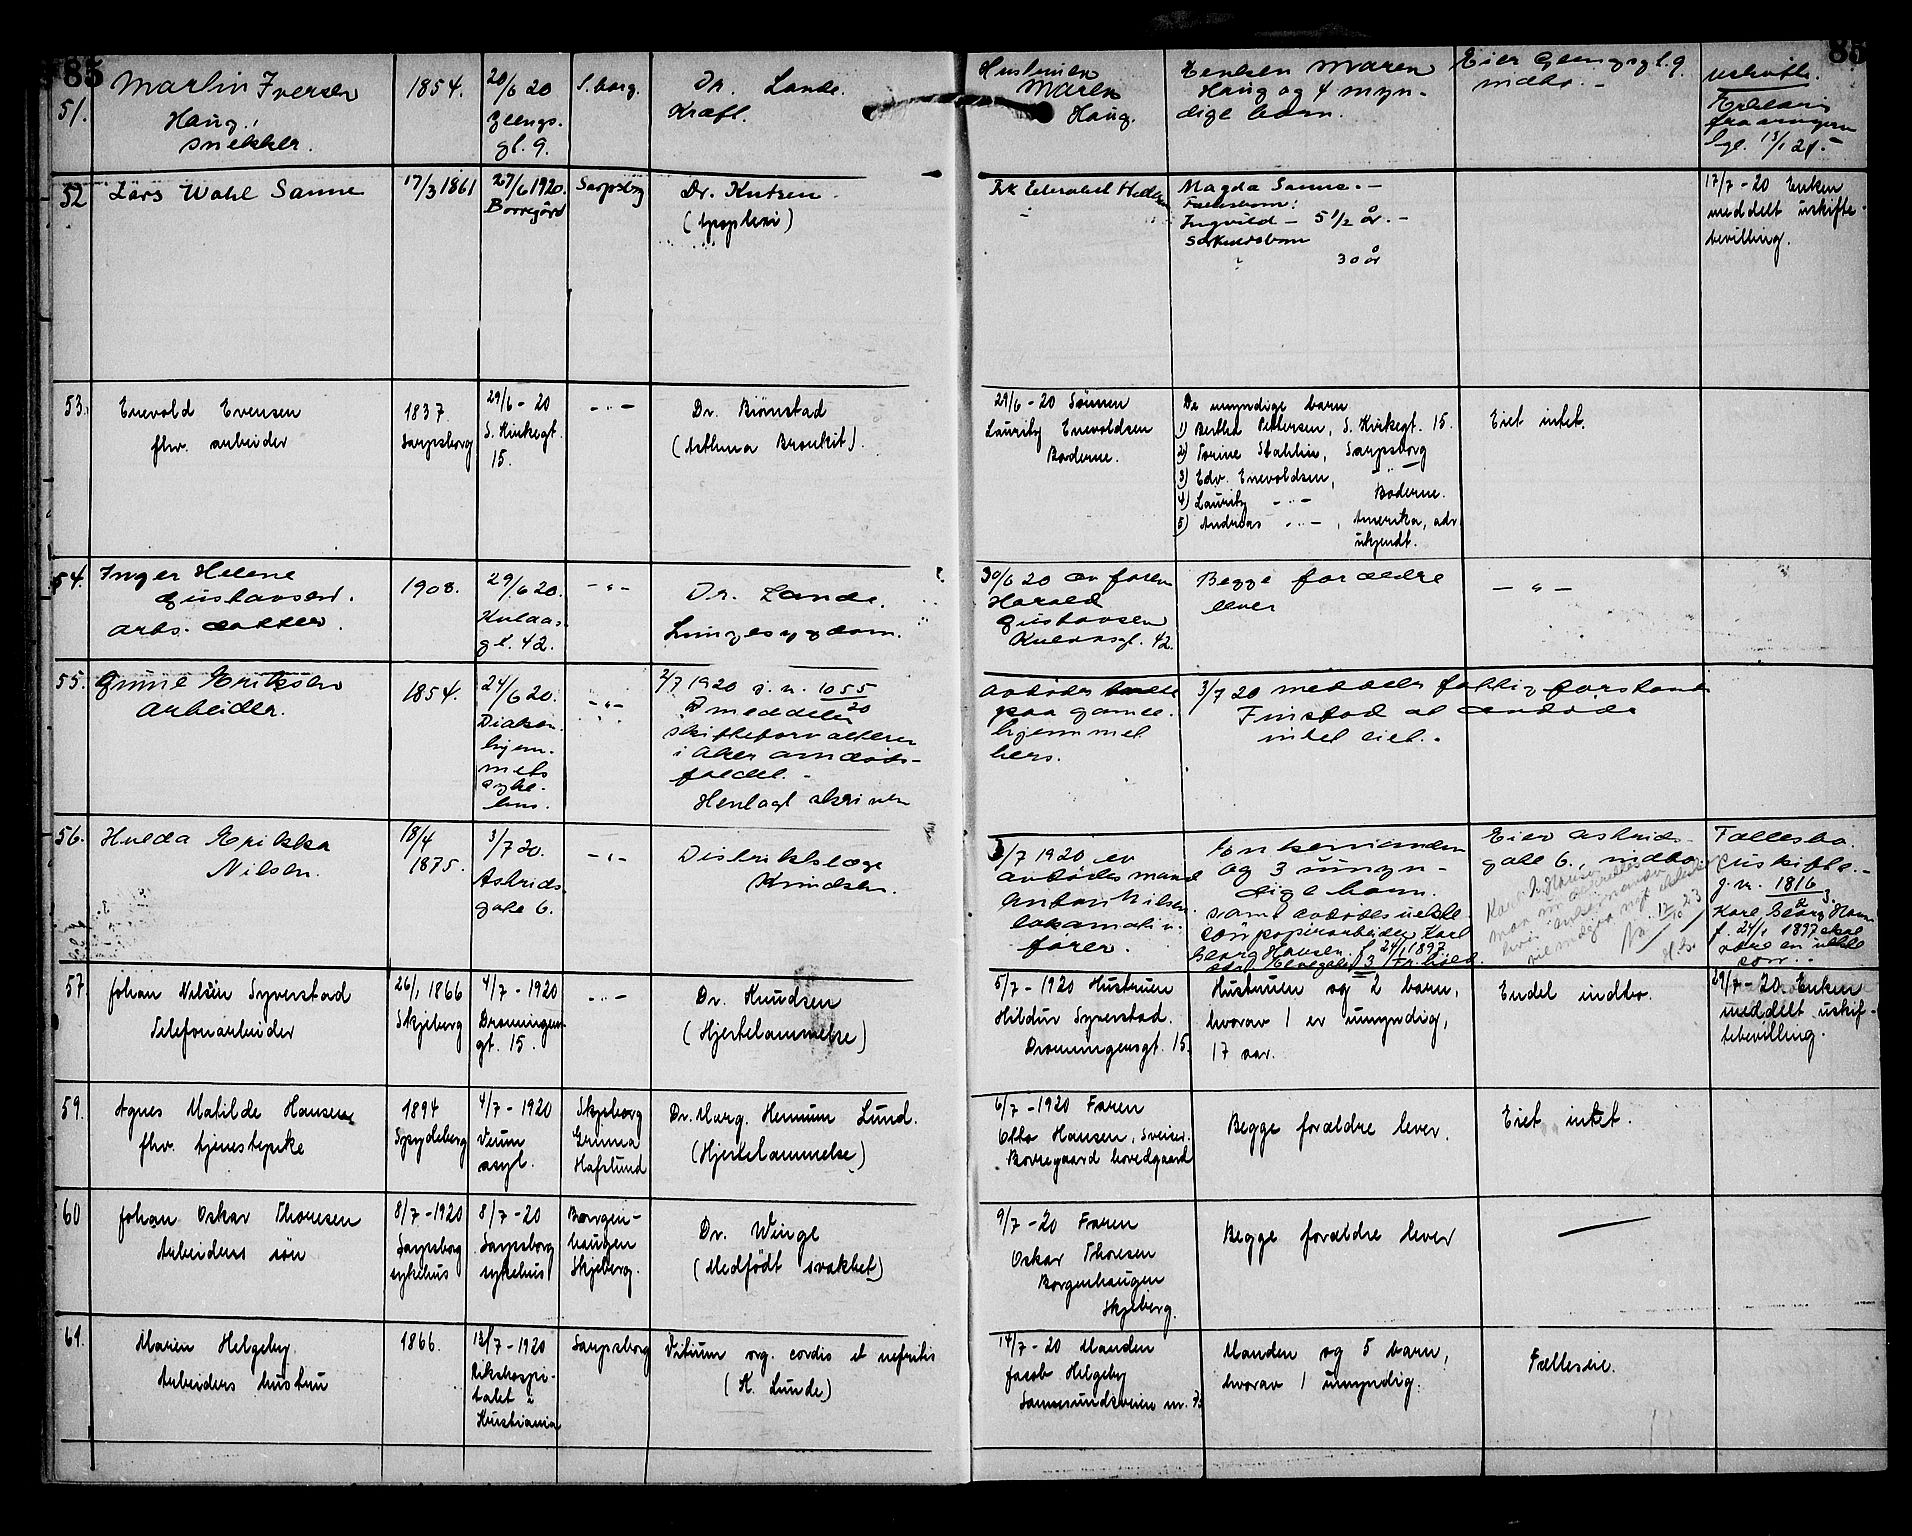 85
85
51.
Martin Iversen
Haug,
snekker.
1854.
20/6 20
Glengs-
gt. 9.
S.borg.
Dr. Lande.
Kræft.
Hustruen
Maren
Haug.
Enken Maren
Haug og 4 myn-
dige barn.
Eier Glengsgt. 9
indbo. -
uskifte.
Erklæring
fra
15/1 21. -
52
Lars Wahl Sanne
17/3 1861
27/6 1920.
Borregård
Sarpsborg
Dr. Knutsen
(Apoplexi)
Magda Sanne. -
Fællesbarn:
Ingvild - 5 1/2 år. -
Særkuldsbarn
30 år
17/7 - 20 Enken
meddelt uskifte-
bevilling.
53.
Enevold Evensen
fhv. arbeider
1837
Sarpsborg
29/6 - 20
S. Kirkegt.
15.
- " -
Dr. Biørnstad
(Asthma Bronkit).
29/6 - 20 Sønnen
Lauritz Enevoldsen
Boderne.
De umyndige barn
1) Bertha Pettersen, S. Kirkegt. 15.
2) Torine Stahlin, Sarpsborg
3) Edv. Enevoldsen, - " -
4) Lauritz - " - Boderne.
5) Andreas - " - , Amerika, adr.
ukjendt.
Eiet intet.
54.
Inger Helene
Gustavsen.
arb. datter.
1908.
29/6 20.
Kulaas-
gt. 42.
- " -
Dr. Lande.
Lungesygdom.
30/6 20 av faren
Harald
Gustavsen
Kulaasgt. 42.
Begge forældre
lever
- " -
55.
Eriksen
Arbeider.
1854.
24/6 20.
Diakon-
hjem-
mets
syke-
hus.
- " -
2/7 1920 j. n. 1055/20
meddeler
skifteforvalteren
i Aker om døds-
faldet. -
Henlagt skrivn
Avdødes
paa gamle-
hjemmet
hers.
3/7 20 meddeler fattigforstand
Finstad at avdøde
intet eiet. -
56.
Hulda Erikka
Nilsen.
18/4
1875.
3/7 20.
Astrids-
gate 6.
- " -
Distriktslæge
Knudsen.
5/7 1920 av
avdødes mand
Anton Nilsen
lokomotiv-
fører.
Enkemanden
og 3 umyn-
dige barn.
samt avdødes uekte
søn papirarbeider Karl
Georg Hansen f. 24/1 1897
Eier Astrids-
gate 6., indbo
Karl G. Hansen
17/10 23
Fællesbo.
uskifte. -
j. nr. 1816/23
Karl Georg Hans
f. 24/1 1897 skal
være en uekte
søn. -
57.
Johan Nilsen Syverstad
Telefonarbeider
26/1 1866
Skjeberg
4/7 - 1920
Dronningens-
gt. 15.
- " -
Dr. Knudsen
(Hjertelammelse)
5/7 - 1920 Hustruen
Hildur Syverstad.
Dronningensgt. 15.
Hustruen og 2 barn,
hvorav 1 er umyndig,
17 aar.
Endel indbo.
29/7 - 20 Enken
meddelt uskif-
tebevilling.
59.
Agnes Matilde Hansen
fhv. tjenestepike
1894
Spydeberg
4/7 - 1920
Veum
asyl.
Skjeberg
Grimma
Hafslund
Dr. Marg. Hemum Lund.
(Hjertelammelse)
6/7 - 1920 Faren
Otto Hansen, Sveiser.
Borregaard hovedgaard
Begge forældre lever.
Eiet intet.
60
Johan Oskar Thoresen
Arbeiders søn
8/7 - 1920
Sarpsborg
sykehus
8/7 - 20
Sarpsborg
sykehus
Borgen-
haugen
Skjeberg.
Dr. Winge
(Medfödt svakhet)
9/7 - 20 Faren
Oskar Thoresen
Borgenhaugen
Skjeberg.
Begge forældre lever
61.
Maren Helgeby
Arbeiders hustru
1866.
13/7 - 1920
Rikshospi-
talet i
Kristiania
Sarpsborg
Vitium org. cordis et nefritis
(K. Lunde)
14/7 - 20 Manden
Jacob Helgeby
Sannesundsveien nr. 73
Manden og 5 barn,
hvorav 1 umyndig.
Fælleseie.